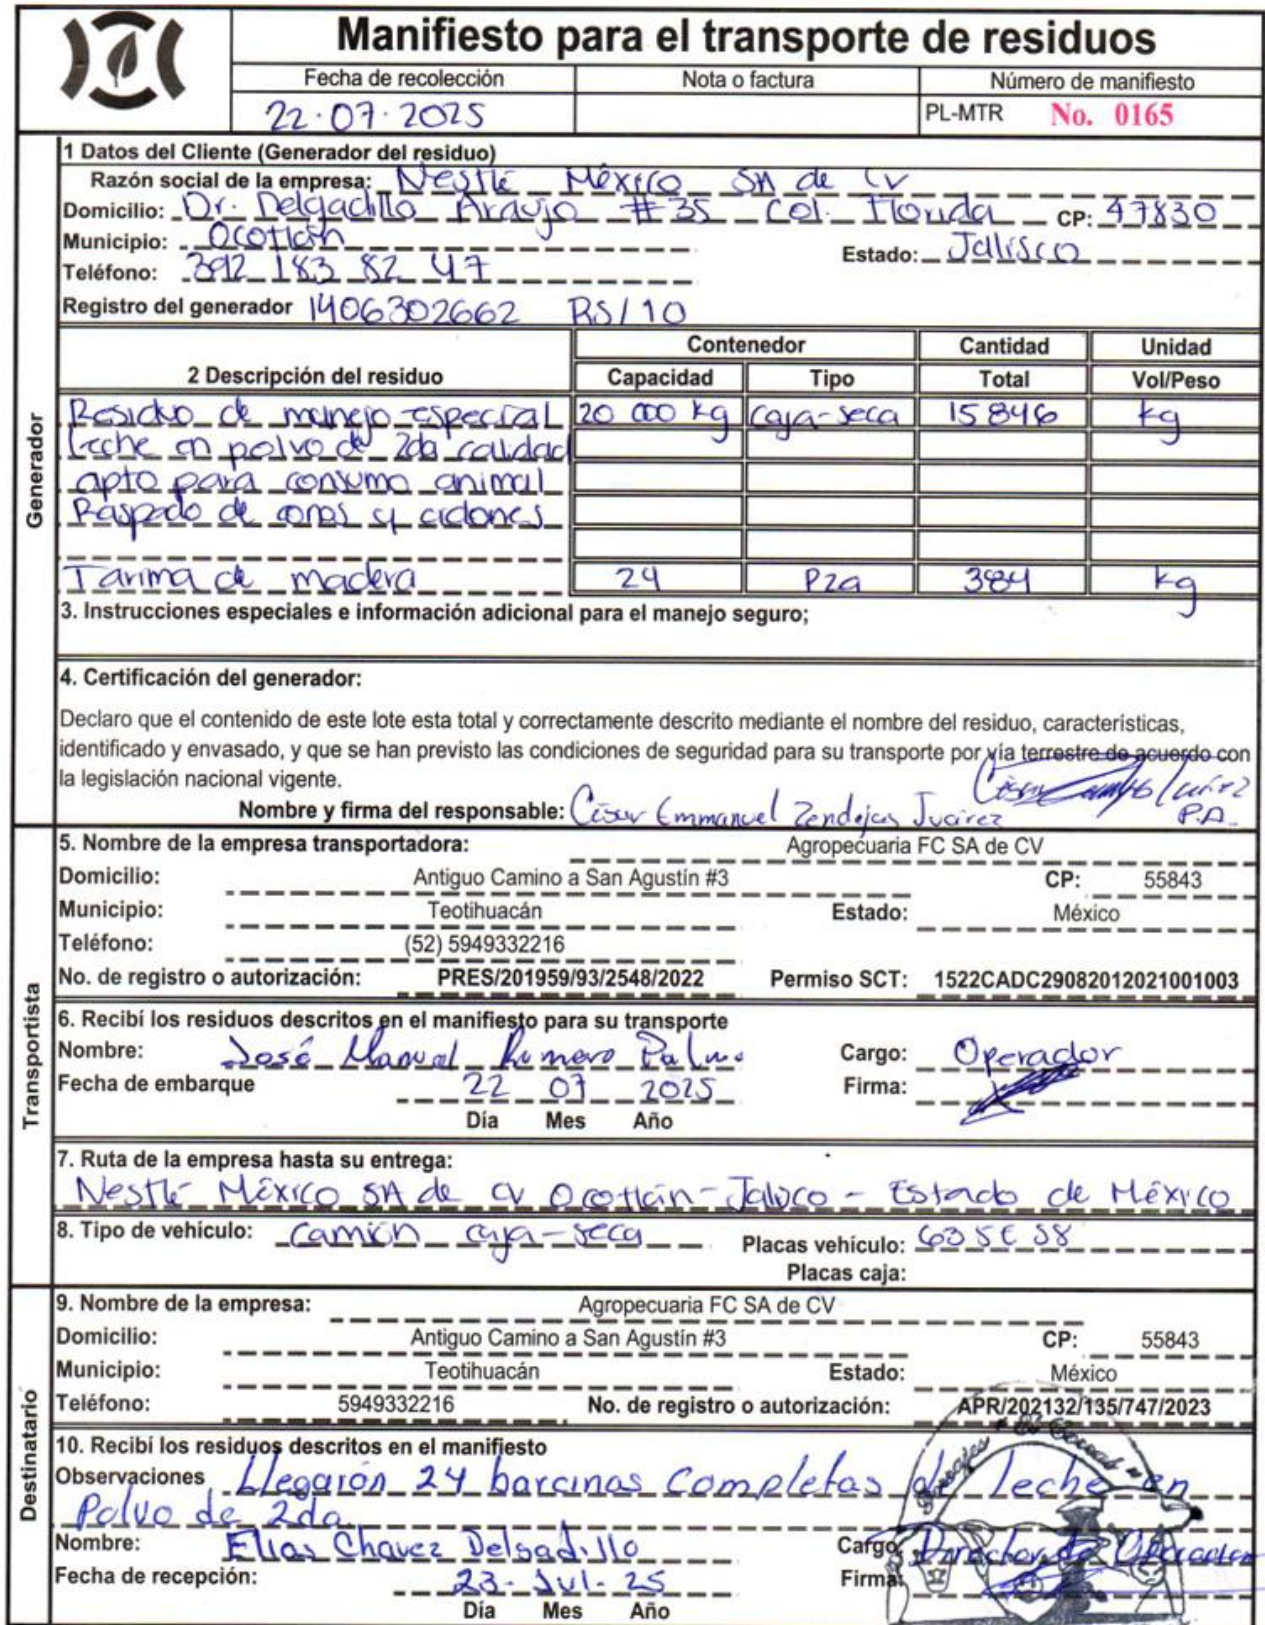 Manifiesto para el transporte de residuos
Fecha de recolección Nota o factura Número de manifiesto
22·07·2025 PL-MTR No. 0165
1 Datos del Cliente (Generador del residuo)
Razón social de la empresa: Nestlé México SA de CV
Domicilio: Dr. Delgadillo Araujo #35 Col. Florida CP: 47830
Municipio: Ocotlán Estado: Jalisco
Teléfono: 392 183 82 47
Registro del generador 1406302662 RS/10
Contenedor Cantidad Unidad
2 Descripción del residuo Capacidad Tipo Total Vol/Peso
Residuo de manejo especial 20 000 kg caja-seca 15846 kg
leche en polvo de 2da calidad
apto para consumo animal
Raspado de conos y ciclones
Tarima de madera 24 Pza 384 kg
3. Instrucciones especiales e información adicional para el manejo seguro;
4. Certificación del generador:
Declaro que el contenido de este lote esta total y correctamente descrito mediante el nombre del residuo, características,
identificado y envasado, y que se han previsto las condiciones de seguridad para su transporte por vía terrestre de acuerdo con
la legislación nacional vigente.
Nombre y firma del responsable: César Emmanuel Zendejas Juárez P.A.
5. Nombre de la empresa transportadora: Agropecuaria FC SA de CV
Domicilio: Antiguo Camino a San Agustín #3 CP: 55843
Municipio: Teotihuacán Estado: México
Teléfono: (52) 5949332216
No. de registro o autorización: PRES/201959/93/2548/2022 Permiso SCT: 1522CADC29082012021001003
6. Recibí los residuos descritos en el manifiesto para su transporte
Nombre: José Manuel Romero Palma Cargo: Operador
Fecha de embarque 22 07 2025 Firma:
Día Mes Año
7. Ruta de la empresa hasta su entrega:
Nestlé México SA de CV Ocotlán-Jalisco - Estado de México
8. Tipo de vehículo: Camión caja-seca Placas vehículo:
Placas caja:
9. Nombre de la empresa: Agropecuaria FC SA de CV
Domicilio: Antiguo Camino a San Agustín #3 CP: 55843
Municipio: Teotihuacán Estado: México
Teléfono: 5949332216 No. de registro o autorización: APR/202132/135/747/2023
10. Recibí los residuos descritos en el manifiesto
Observaciones Llegarón 24 barcinas Completas de leche en
Polvo de 2da
Nombre: Elias Chavez Delgadillo Cargo: Director de Operación
Fecha de recepción: 23- Jul- 25 Firma:
Día Mes Año
Generador
Transportista
Destinatario